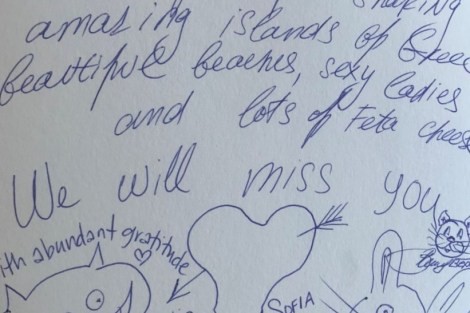 amazing islands of Greec
beautiful beaches, sexy ladies
and lots of Feta cheese
We will miss you
with abundant gratitude
SOFIA